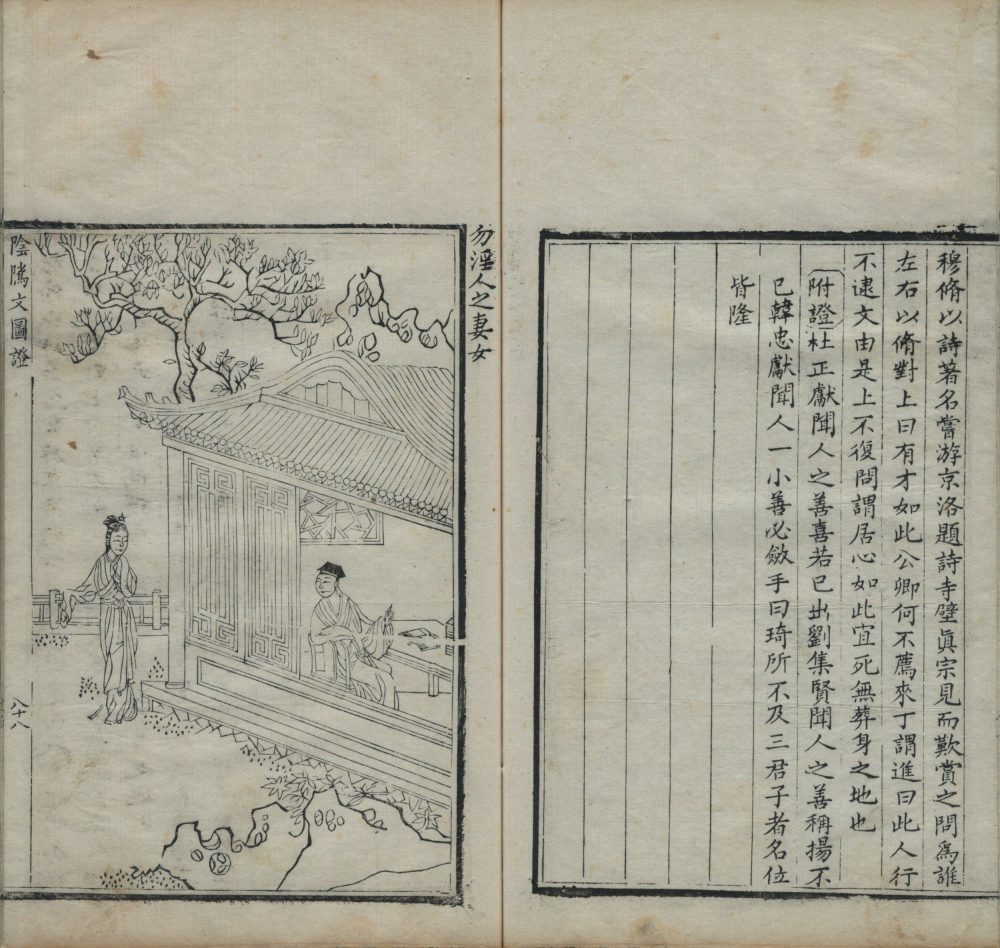 穆脩以詩著名嘗游京洛題詩寺壁眞宗見而歎賞之問爲誰
左右以脩對上曰有才如此公卿何不薦來丁謂進曰此人行
不逮文由是上不復問謂居心如此宜死無葬身之地也
附證杜正獻聞人之善喜若已出劉集賢聞人之善稱揚不
已韓忠獻聞人一小善必斂手曰琦所不及三君子者名位
皆隆
勿淫人之妻女
陰隲文圖證
八十八